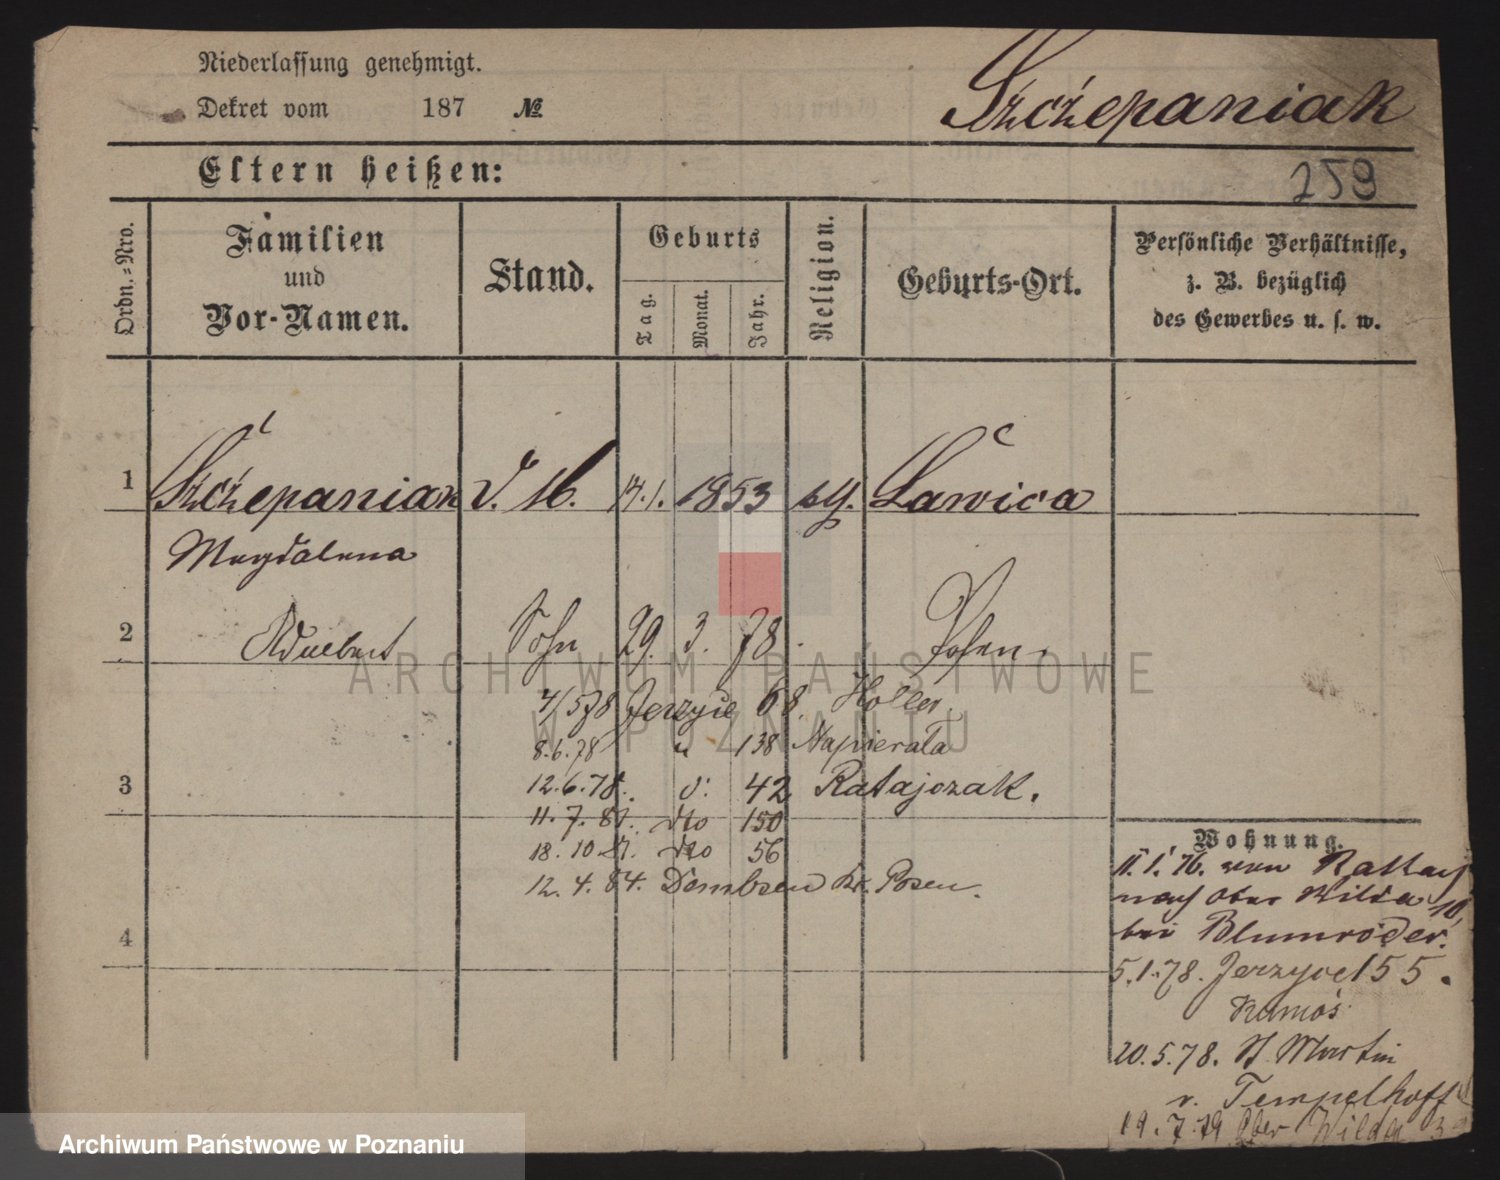 Niederlassung genehmigt.
Dekret vom 187 №
Szczepaniak
Eltern heißen:
259
Ordn.=Nro.
Familien
und
Vor-Namen.
Stand.
Geburts
Tag.
Monat.
Jahr.
Religion.
Geburts-Ort.
Persönliche Verhältnisse,
z. B. bezüglich
des Gewerbes u. s. w.
1 Szczepaniak 1853 Ławica
Magdalena
2 Adalbert Sohn 29. 3. 78. Posen.
ARCHIWUM PAŃSTWOWE
W POZNANIU
4/578 Jerzyce 68. Holler.
8.6.78 " 138 Napierała
3 12.6.78. 42 Ratajczak.
11. 7. 81. dto 150
18. 10 81. dto 56
12. 4. 84. Dembsen Kr. Posen.
4
Wohnung.
11.1.76. von Rattay
nach Ober Wilda 10,
bei Blumröder.
5.1.78. Jerzyce 155.
20.5.78. St Martin
v. Tempelhoff
19.7.79 Ober Wilda
Archiwum Państwowe w Poznaniu